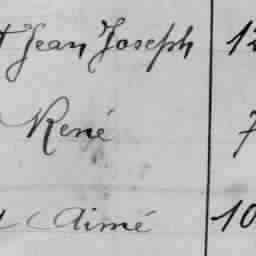 Jean Joseph 12
René 7
Aimé 10